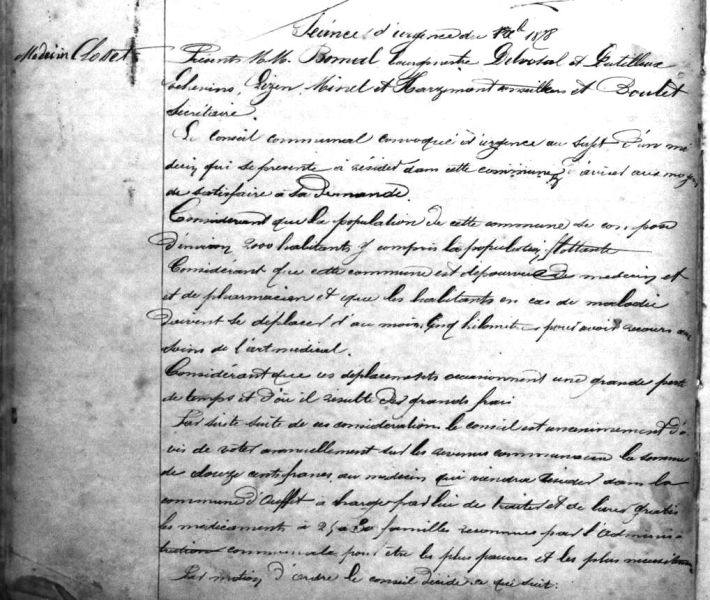 Séance d'urgence du 1878
Medecin Closset
Présents M.M. Bomal bourgmestre Delvosal et
Echevins, Lizen Minet et Harzimont conseillers et Boulet
Secrétaire.
Le Conseil communal convoqué d'urgence au sujet d'un mé
decin qui se presente à résider dans cette commune, d'aviser aux moyens
de satisfaire à sa Demande.
Considerant que la population de cette commune se compose
D'environ 2000 habitants y compris la population flottante
Considerant que cette commune est dépourvue de medecin et
et de pharmacien et que les habitants en cas de maladie
Doivent se deplacer d'au moins Cinq kilometres pour avoir recours aux
soins de l'art medical.
Considérant que ces deplacements occasionnent une grande perte
de temps et d'où il résulte des grands frais
Par suite suite de ces considerations le conseil est unanimement d'a
vis de voter annuellement sur les revenus communaux la somme
de douze cents francs au medecin qui viendra resider dans la
commune d'Ouffet à charge par lui de traiter et de livrer gratis
les medicaments à 25 a 30 familles reconnues par l'adminis
tration communale pour être les plus pauvres et les plus necessiteuses
Par motion d'ordre le conseil décide ce qui suit: